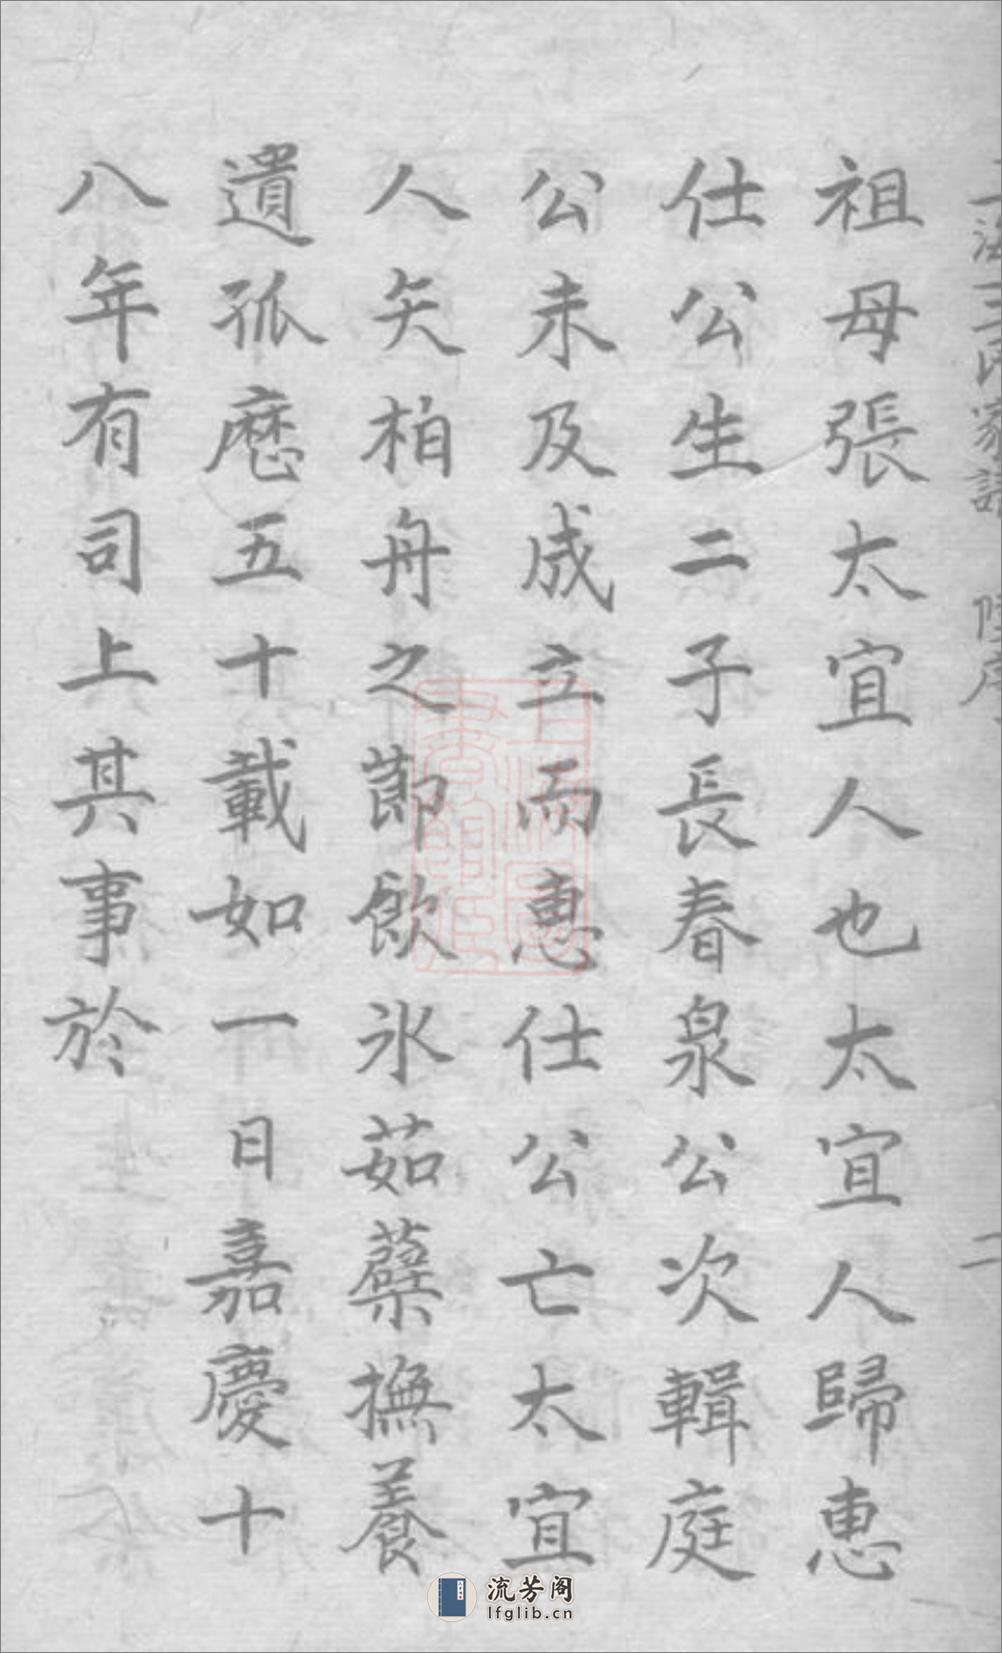 上海王氏家譜 陸序 二
祖母張太宜人也太宜人歸惠
仕公生二子長春泉公次輯庭
公未及成立而惠仕公亡太宜
人矢柏舟之節飲氷茹蘗撫養
遺孤歷五十載如一日嘉慶十
八年有司上其事於
流芳阁
lfglib.cn